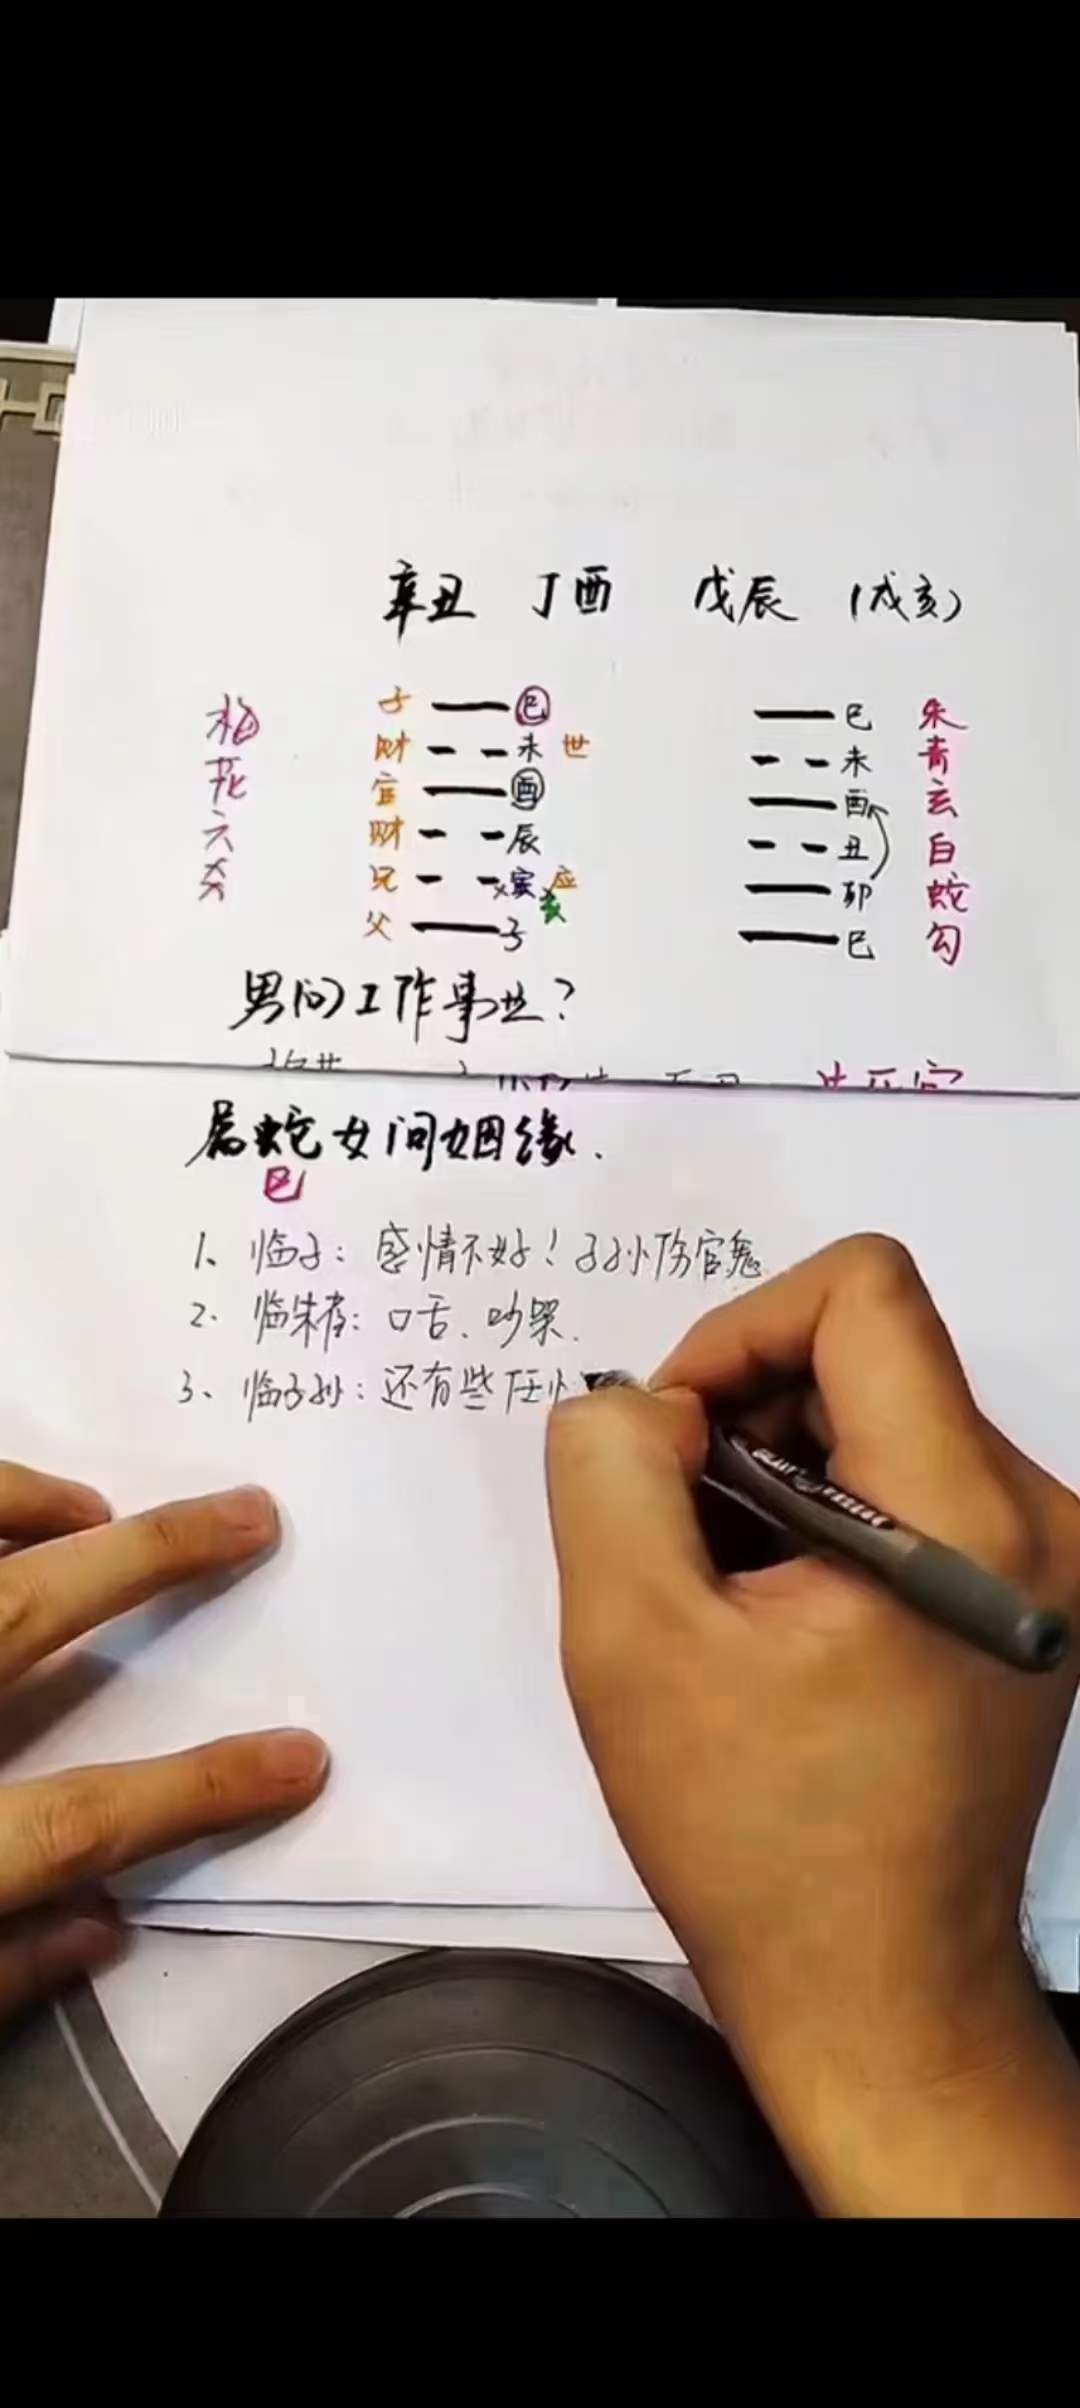 辛丑 丁酉 戊辰 (戌亥)
梅花六爻
子 巳 巳 朱
财 未 世 未 青
官 酉 酉 玄
财 辰 丑 白
兄 ×寅 应 卯 蛇
亥
父 子 巳 勾
男问工作事业?
属蛇女问姻缘.
巳
1、临子: 感情不好!子孙伤官鬼
2、临朱雀: 口舌、吵架.
3、临子孙: 还有些任